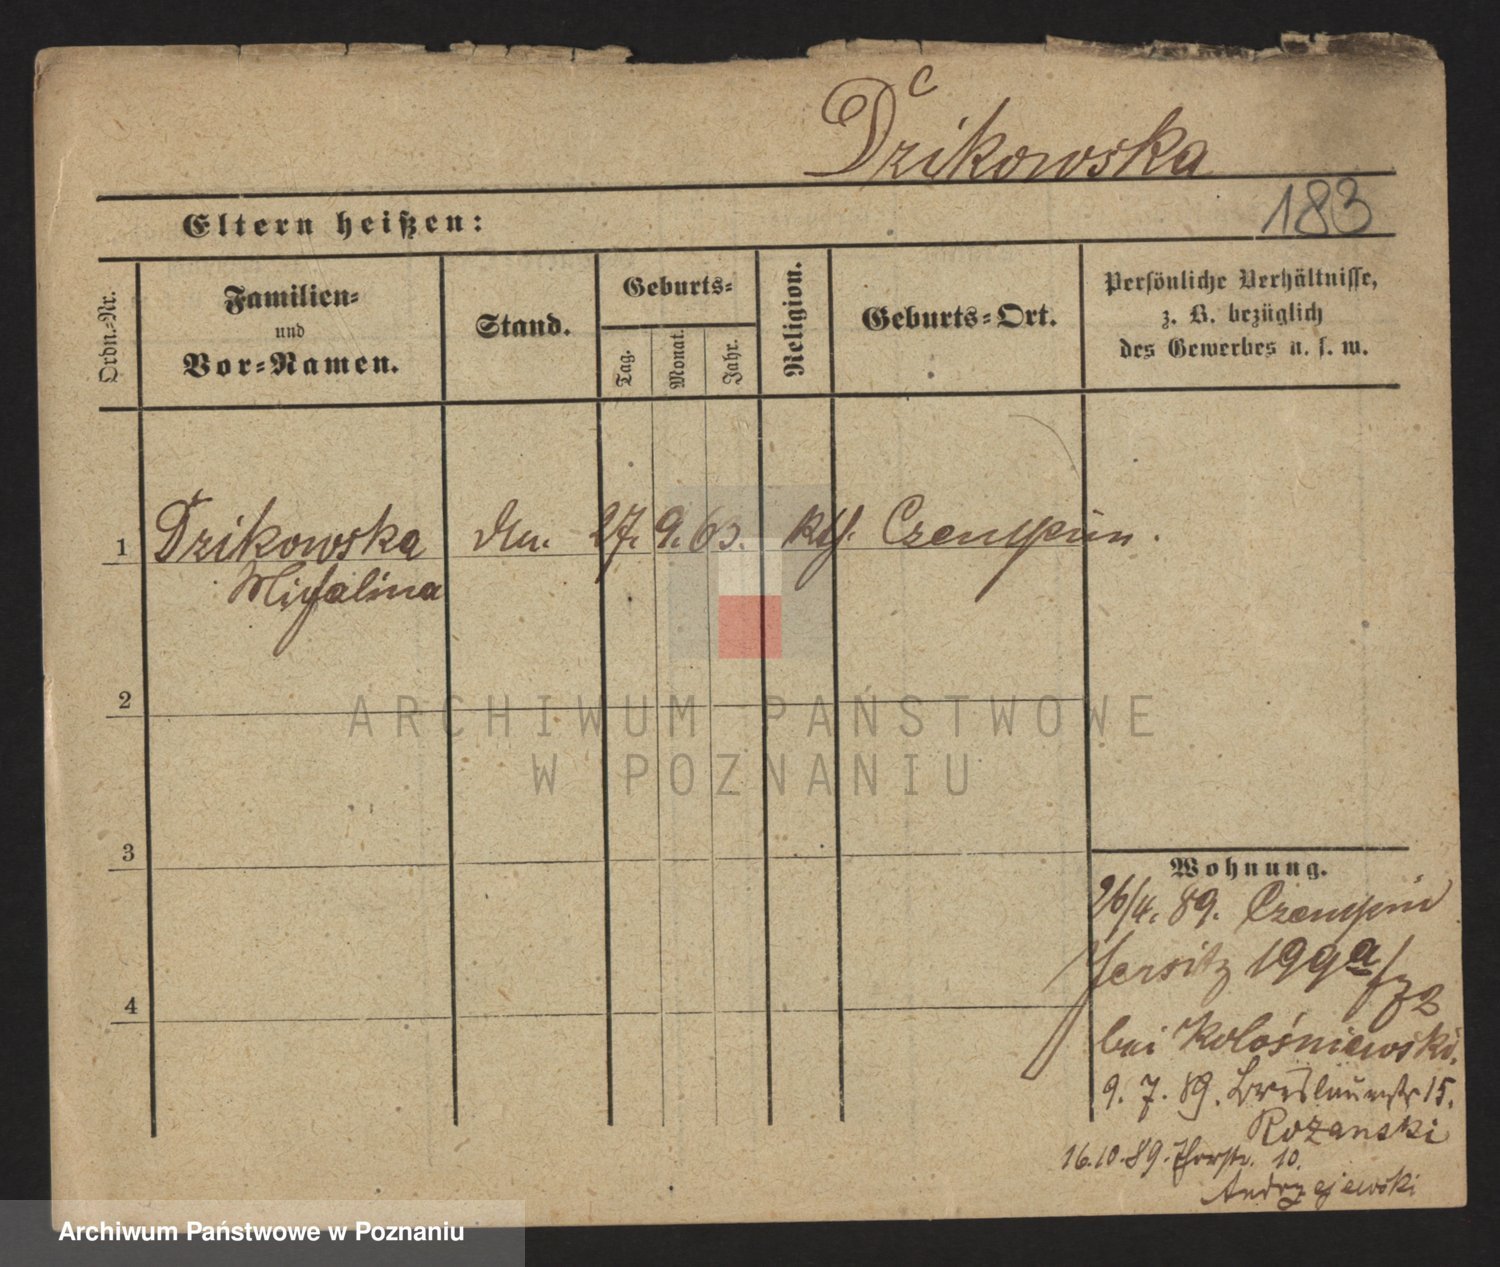 c
Dzikowska
Eltern heißen:
183
Ordn.-Nr.
Familien-
und
Vor-Namen.
Stand.
Geburts-
Tag.
Monat.
Jahr.
Religion.
Geburts-Ort.
Persönliche Verhältnisse,
z. B. bezüglich
des Gewerbes u. s. w.
1 Dzikowska 27. 9. 63. kth. Czempin.
Michalina
2
3
4
Wohnung.
26/4. 89. Czempin
Jersitz 199a/z2
bei Kolośniewski.
9. 7. 89. Breslauerstr 15.
Rozanski
16.10.89. 10.
Andrzejewski
ARCHIWUM PAŃSTWOWE
W POZNANIU
Archiwum Państwowe w Poznaniu